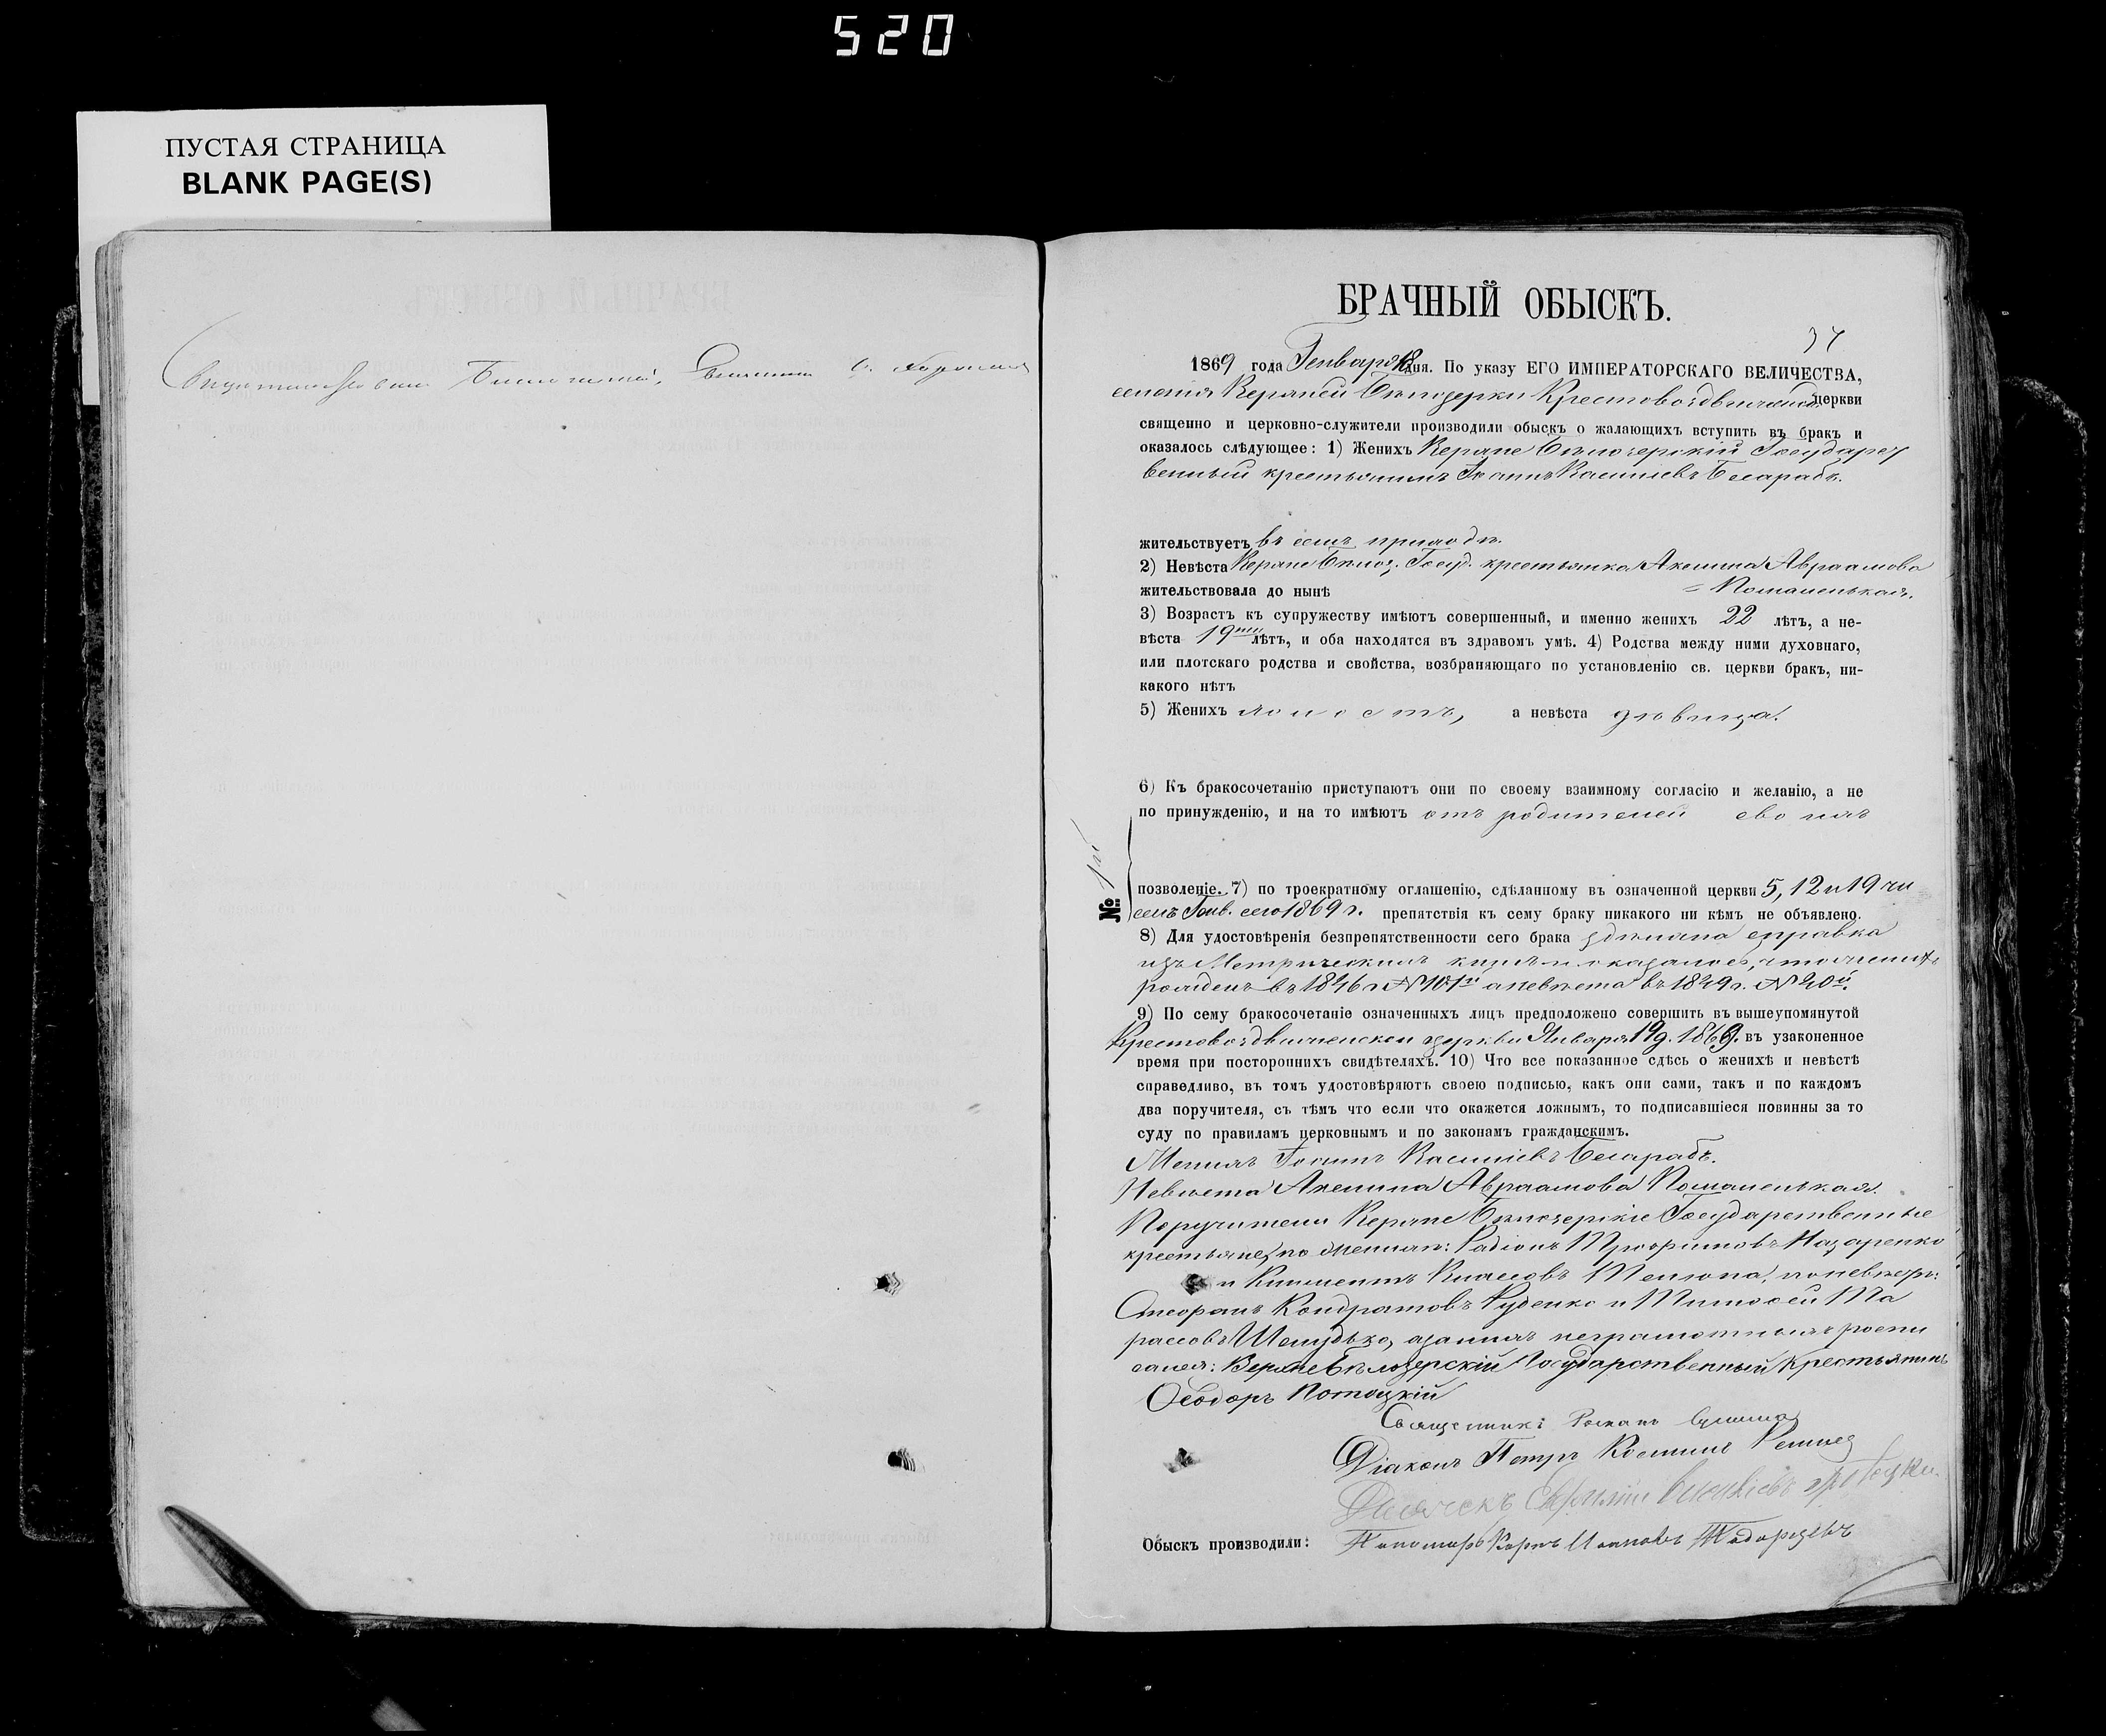 520
ПУСТАЯ СТРАНИЦА
BLANK PAGE(S)
БРАЧНЫЙ ОБЫСКЪ.
37
1869 года Генваря 18 дня. По указу ЕГО ИМПЕРАТОРСКАГО ВЕЛИЧЕСТВА,
селенія Верхней Бѣлозерки Крестовоздвиженской церкви
священно и церковно-служители производили обыскъ о жалающихъ вступить въ бракъ и
оказалось слѣдующее: 1) Женихъ Верхне Бѣлозерскій Государст
венный крестьянинъ Іоаннъ Василіевъ Бесарабъ.
жительствуетъ въ семъ приходѣ.
2) Невѣста Верхне Бѣлоз. Госуд. крестьянка Акилина Авраамова
жительствовала до нынѣ = Поманенькая.
3) Возрастъ къ супружеству имѣютъ совершенный, и именно женихъ 22 лѣтъ, а не-
вѣста 19ти лѣтъ, и оба находятся въ здравомъ умѣ. 4) Родства между ними духовнаго,
или плотскаго родства и свойства, возбраняющаго по установленію св. церкви бракъ, ни-
какого нѣтъ
5) Женихъ холостъ, а невѣста дѣвица.
6) Къ бракосочетанію приступаютъ они по своему взаимному согласію и желанію, а не
по принужденію, и на то имѣютъ отъ родителей своихъ
№ 1й
позволеніе. 7) по троекратному оглашенію, сдѣланному въ означенной церкви 5, 12 и 19 чи
селъ Генв. сего 1869 г. препятствія къ сему браку никакого ни кѣмъ не объявлено.
8) Для удостовѣренія безпрепятственности сего брака здѣлана справка
изъ Метрическихъ книгъ и оказалось, что женихъ
рожденъ въ 1846 г. № 101й а невѣста въ 1849 г. № 20й.
9) По сему бракосочетаніе означенныхъ лицъ предположено совершить въ вышеупомянутой
Крестовоздвиженской церкви Января 19 д. 1869. въ узаконенное
время при постороннихъ свидѣтеляхъ. 10) Что все показанное сдѣсь о женихѣ и невѣстѣ
справедливо, въ томъ удостовѣряютъ своею подписью, какъ они сами, такъ и по каждомъ
два поручителя, съ тѣмъ что если что окажется ложнымъ, то подписавшіеся повинны за то
суду по правиламъ церковнымъ и по законамъ гражданскимъ.
Женихъ Іоаннъ Василіевъ Бесарабъ.
Невѣста Акилина Авраамова Поманенькая.
Поручители Верхне Бѣлозерскіе Государственные
крестьяне, по женихѣ: Радіонъ Трофимовъ Назаренко
и Климентъ Власовъ, по невѣстѣ:
Стефанъ Кондратовъ Руденко и Тимофей Та
расовъ Шелудько, а за нихъ неграмотныхъ роспи
сался: Верхнебѣлозерскій Государственный Крестьянинъ
Ѳеодоръ Потоцкій
Священникъ Романъ
Діаконъ Петръ
Дьячекъ
Обыскъ производили: Пономарь Карпъ Іоановъ